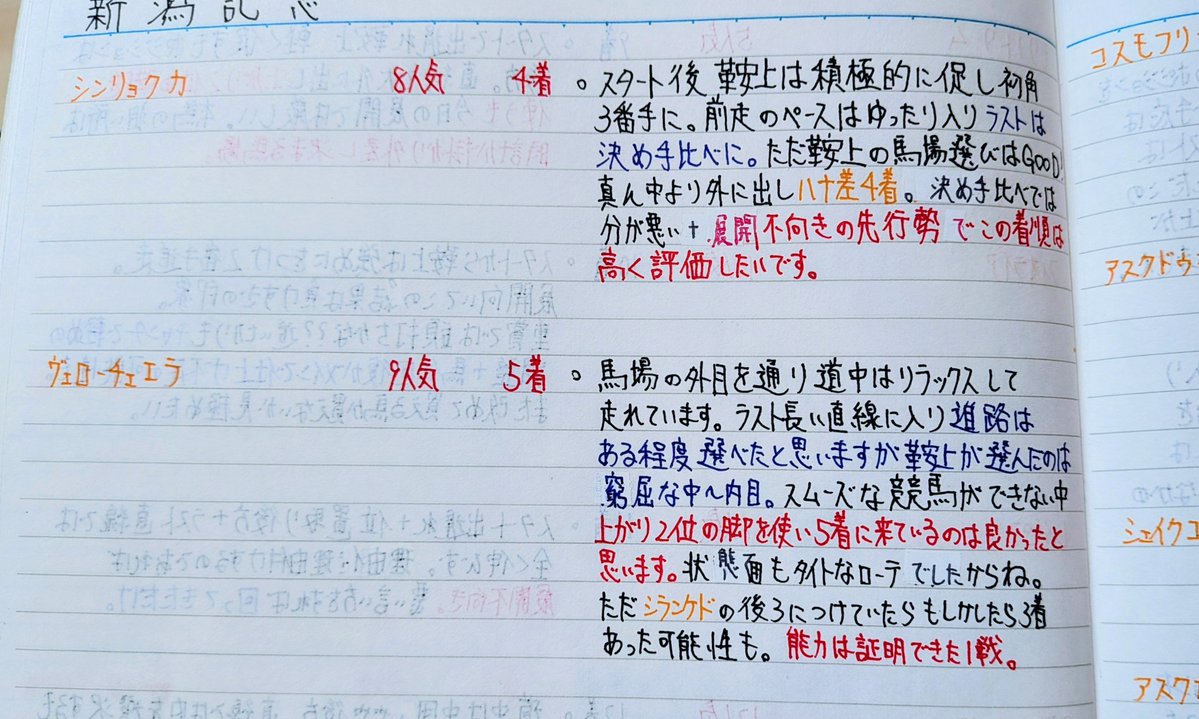 新潟記念
シンリョクカ 8人気 4着 。スタート後 鞍上は積極的に促し初角
3番手に。前走のペースはゆったり入りラストは
決め手比べに。ただ鞍上の馬場選びはGOOD!
真ん中より外に出しハナ差4着。決め手比べでは
分が悪い+展開不向きの先行勢でこの着順は
高く評価したいです。
ヴェローチェエラ 9人気 5着 。馬場の外目を通り道中はリラックスして
走れています。ラスト長い直線に入り進路は
ある程度選べたと思いますが鞍上が選んだのは
窮屈な中〜内目。スムーズな競馬ができない中
上がり2位の脚を使い5着に来ているのは良かったと
思います。状態面もタイトなローテでしたからね。
ただシランケドの後ろにつけていたらもしかしたら3着
あった可能性も。能力は証明できた1戦。
コスモフリ
アスクドゥ
シェイクユ
アスク